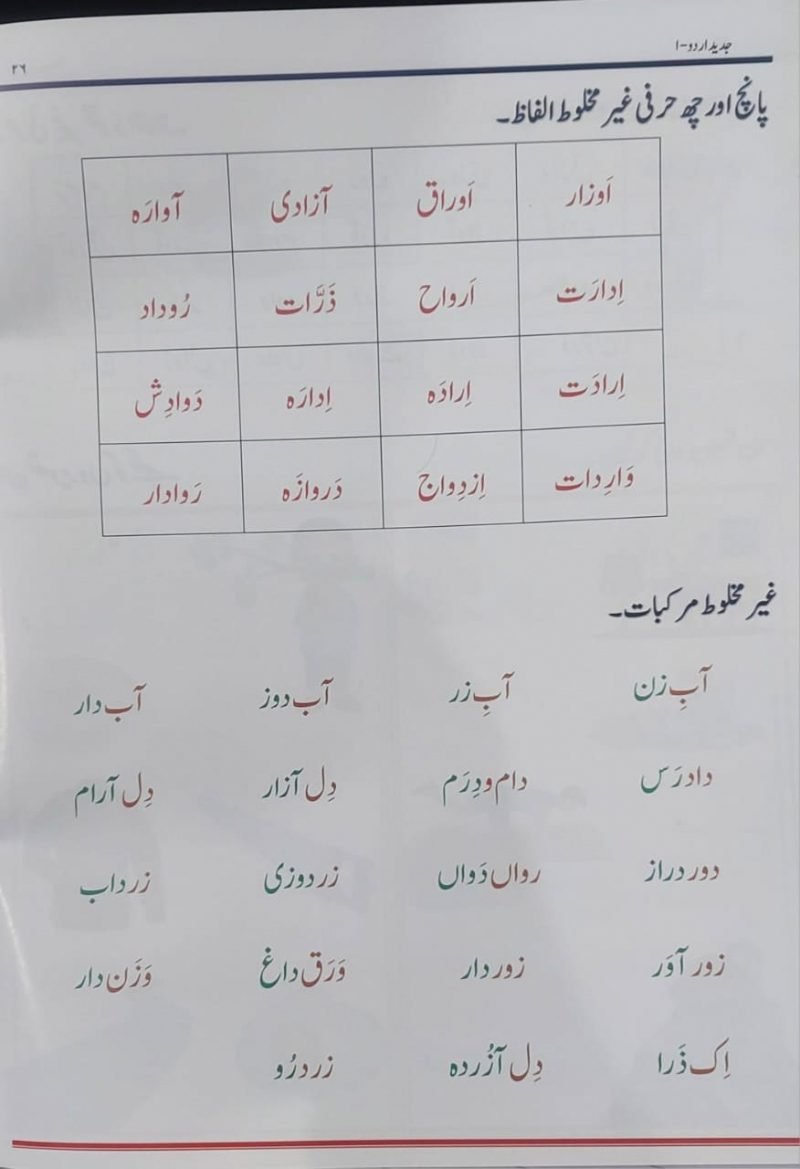 جدید اردو-۱
۲۶
پانچ اور چھ حرفی غیر مخلوط الفاظ۔
اَوزار اَوراق آزادی آوارَہ
اِدارَت اَرواح ذَرَّات رُوداد
اِرادَت اِرادَہ اِدارَہ دَوادِش
وَارِدات اِزدِواج دَروازَہ رَوادار
غیر مخلوط مرکبات۔
آبِ زن آبِ زر آب دوز آب دار
داد رَس دام و دِرَم دِل آزار دِل آرام
دور دراز رواں دَواں زر دوزی زر داب
زور آوَر زور دار وَرَق داغ وَزَن دار
اِک ذَرا دِل آزُردہ زرد رُو